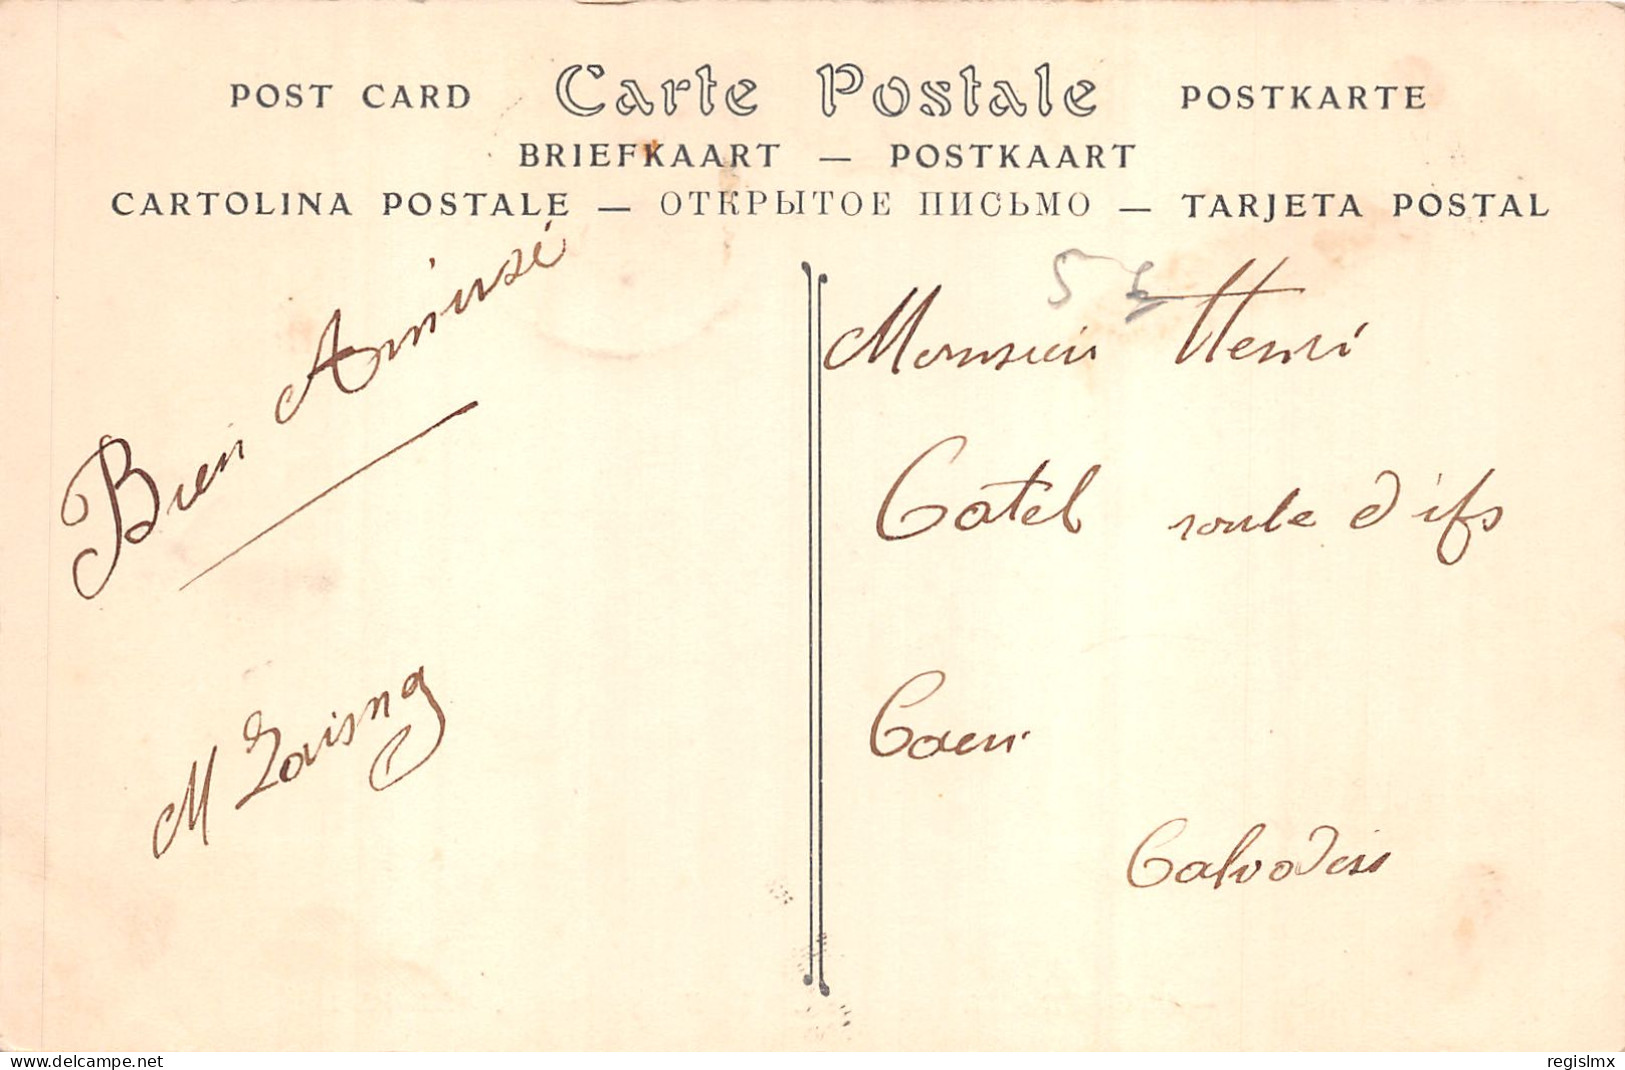 POST CARD Carte Postale POSTKARTE
BRIEFKAART — POSTKAART
CARTOLINA POSTALE — ОТКРЫТОЕ ПИСЬМО — TARJETA POSTAL
Bien Amicizé
M
5
Monsieur Henri
Catel route d'ifs
Caen
Calvados
delcampe.net
regislmx